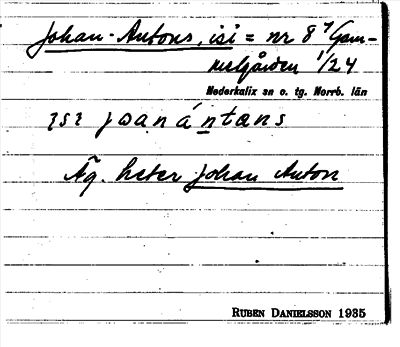 Johan-Antons, isi = nr 8 7/Gam-
melgården 1/24
Nederkalix sn o. tg. Norrb. län
ɪsɪ jωanántæns
Äg. heter Johan Anton
RUBEN DANIELSSON 1935